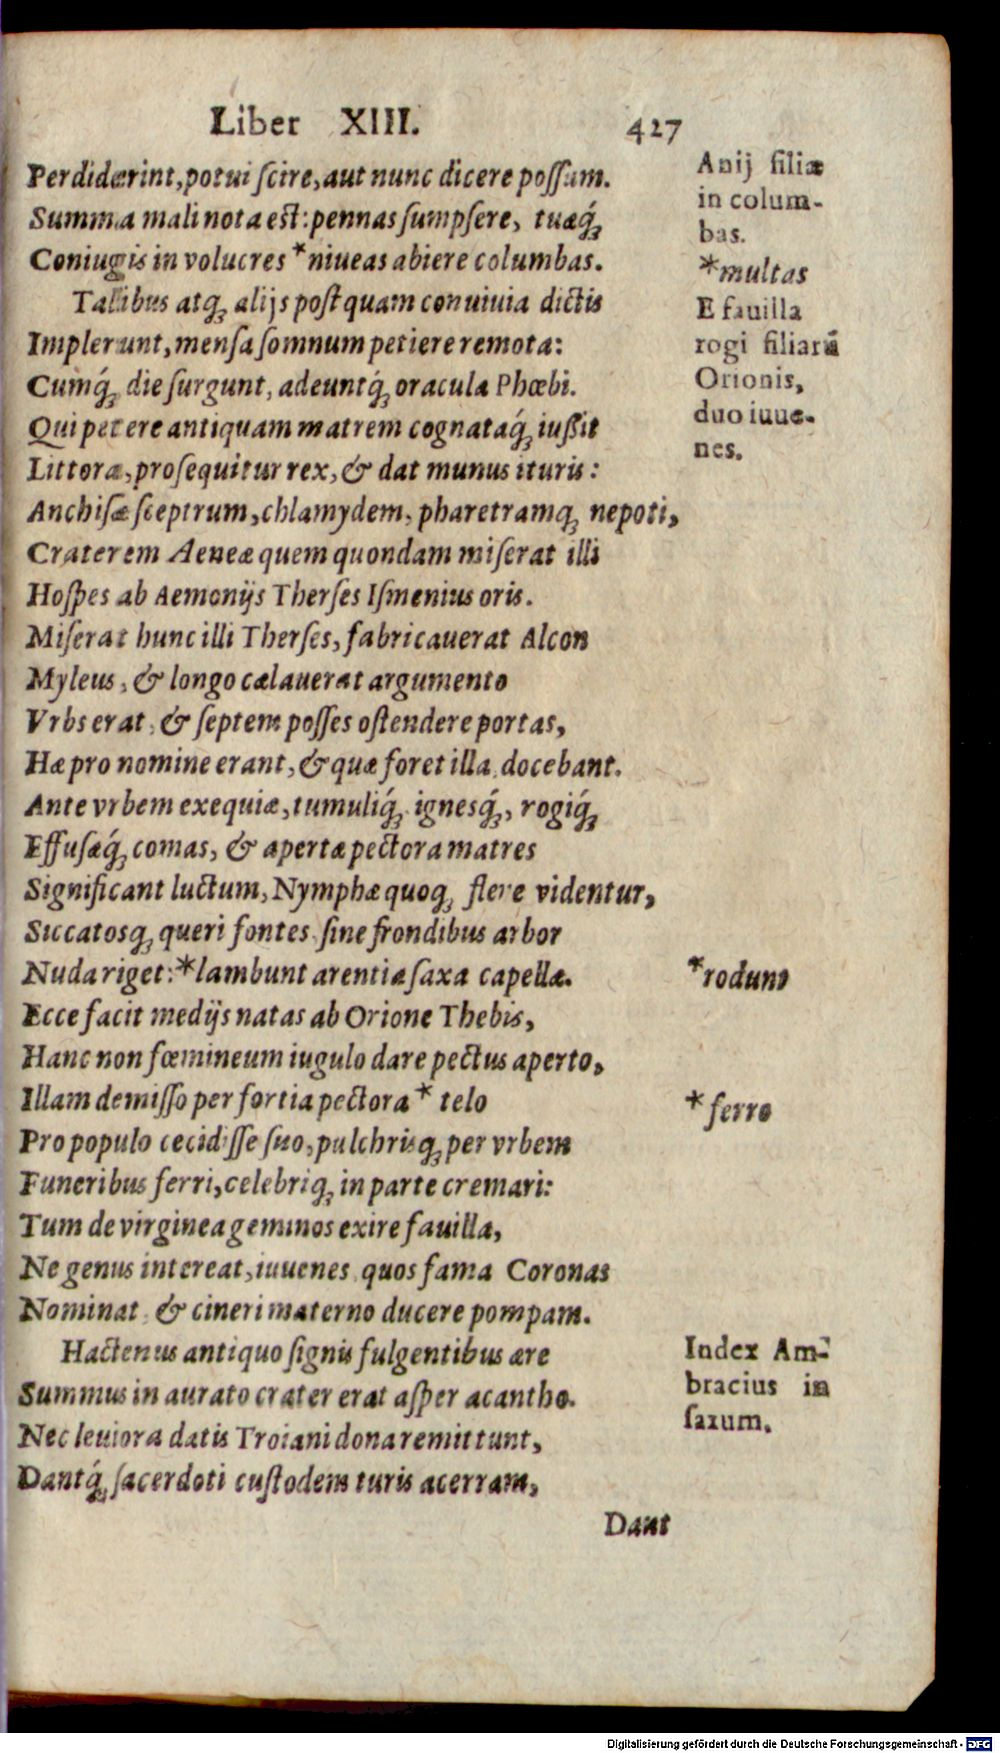 Liber XIIII. 427
Perdiderint, potui ſcire, aut nunc dicere poſſum.
Summa mali nota est: pennas ſumpſere, tuæq́ꝫ
Coniugis in volucres *niueas abiere columbas.
Talibus atqꝫ alijs poſtquam conuiuia dictis
Implerunt, menſa ſomnum petiere remota:
Cumq́ꝫ die ſurgunt, adeuntq́ꝫ oracula Phœbi.
Qui petere antiquam matrem cognataq́ꝫ iußit
Littora, proſequitur rex, & dat munus ituris:
Anchiſæ ſceptrum, chlamydem, pharetramqꝫ nepoti,
Craterem Aeneæ quem quondam miſerat illi
Hoſpes ab Aemonijs Therſes Iſmenius oris.
Miſerat hunc illi Therſes, fabricauerat Alcon
Myleus, & longo cælauerat argumento
Vrbs erat, & ſeptem poſſes oſtendere portas,
Hæ pro nomine erant, & quæ foret illa, docebant.
Ante vrbem exequiæ, tumuliq́ꝫ ignesq́ꝫ, rogiq́ꝫ
Effuſæq́ꝫ comas, & apertæ pectora matres
Significant luctum, Nymphæ quoqꝫ flere videntur,
Siccatosqꝫ queri fontes, ſine frondibus arbor
Nuda riget: *lambunt arentia ſaxa capellæ.
Ecce facit medijs natas ab Orione Thebis,
Hanc non fœmineum iugulo dare pectus aperto,
Illam demiſſo per fortia pectora * telo
Pro populo cecidiſſe ſuo, pulchrisqꝫ per vrbem
Funeribus ferri, celebriqꝫ in parte cremari:
Tum de virginea geminos exire fauilla,
Ne genus intereat, iuuenes, quos fama Coronas
Nominat, & cineri materno ducere pompam.
Hactenus antiquo ſignis fulgentibus ære
Summus in aurato crater erat aſper acantho.
Nec leuiora datis Troiani dona remittunt,
Dantq́ꝫ ſacerdoti cuſtodem turis acerram,
Dant
Anij filiæ
in colum-
bas.
*multas
E fauilla
rogi filiarū
Orionis,
duo iuue-
nes.
*rodunt
*ferro
Index Am-
bracius in
ſaxum.
Digitalisierung gefördert durch die Deutsche Forschungsgemeinschaft - DFG